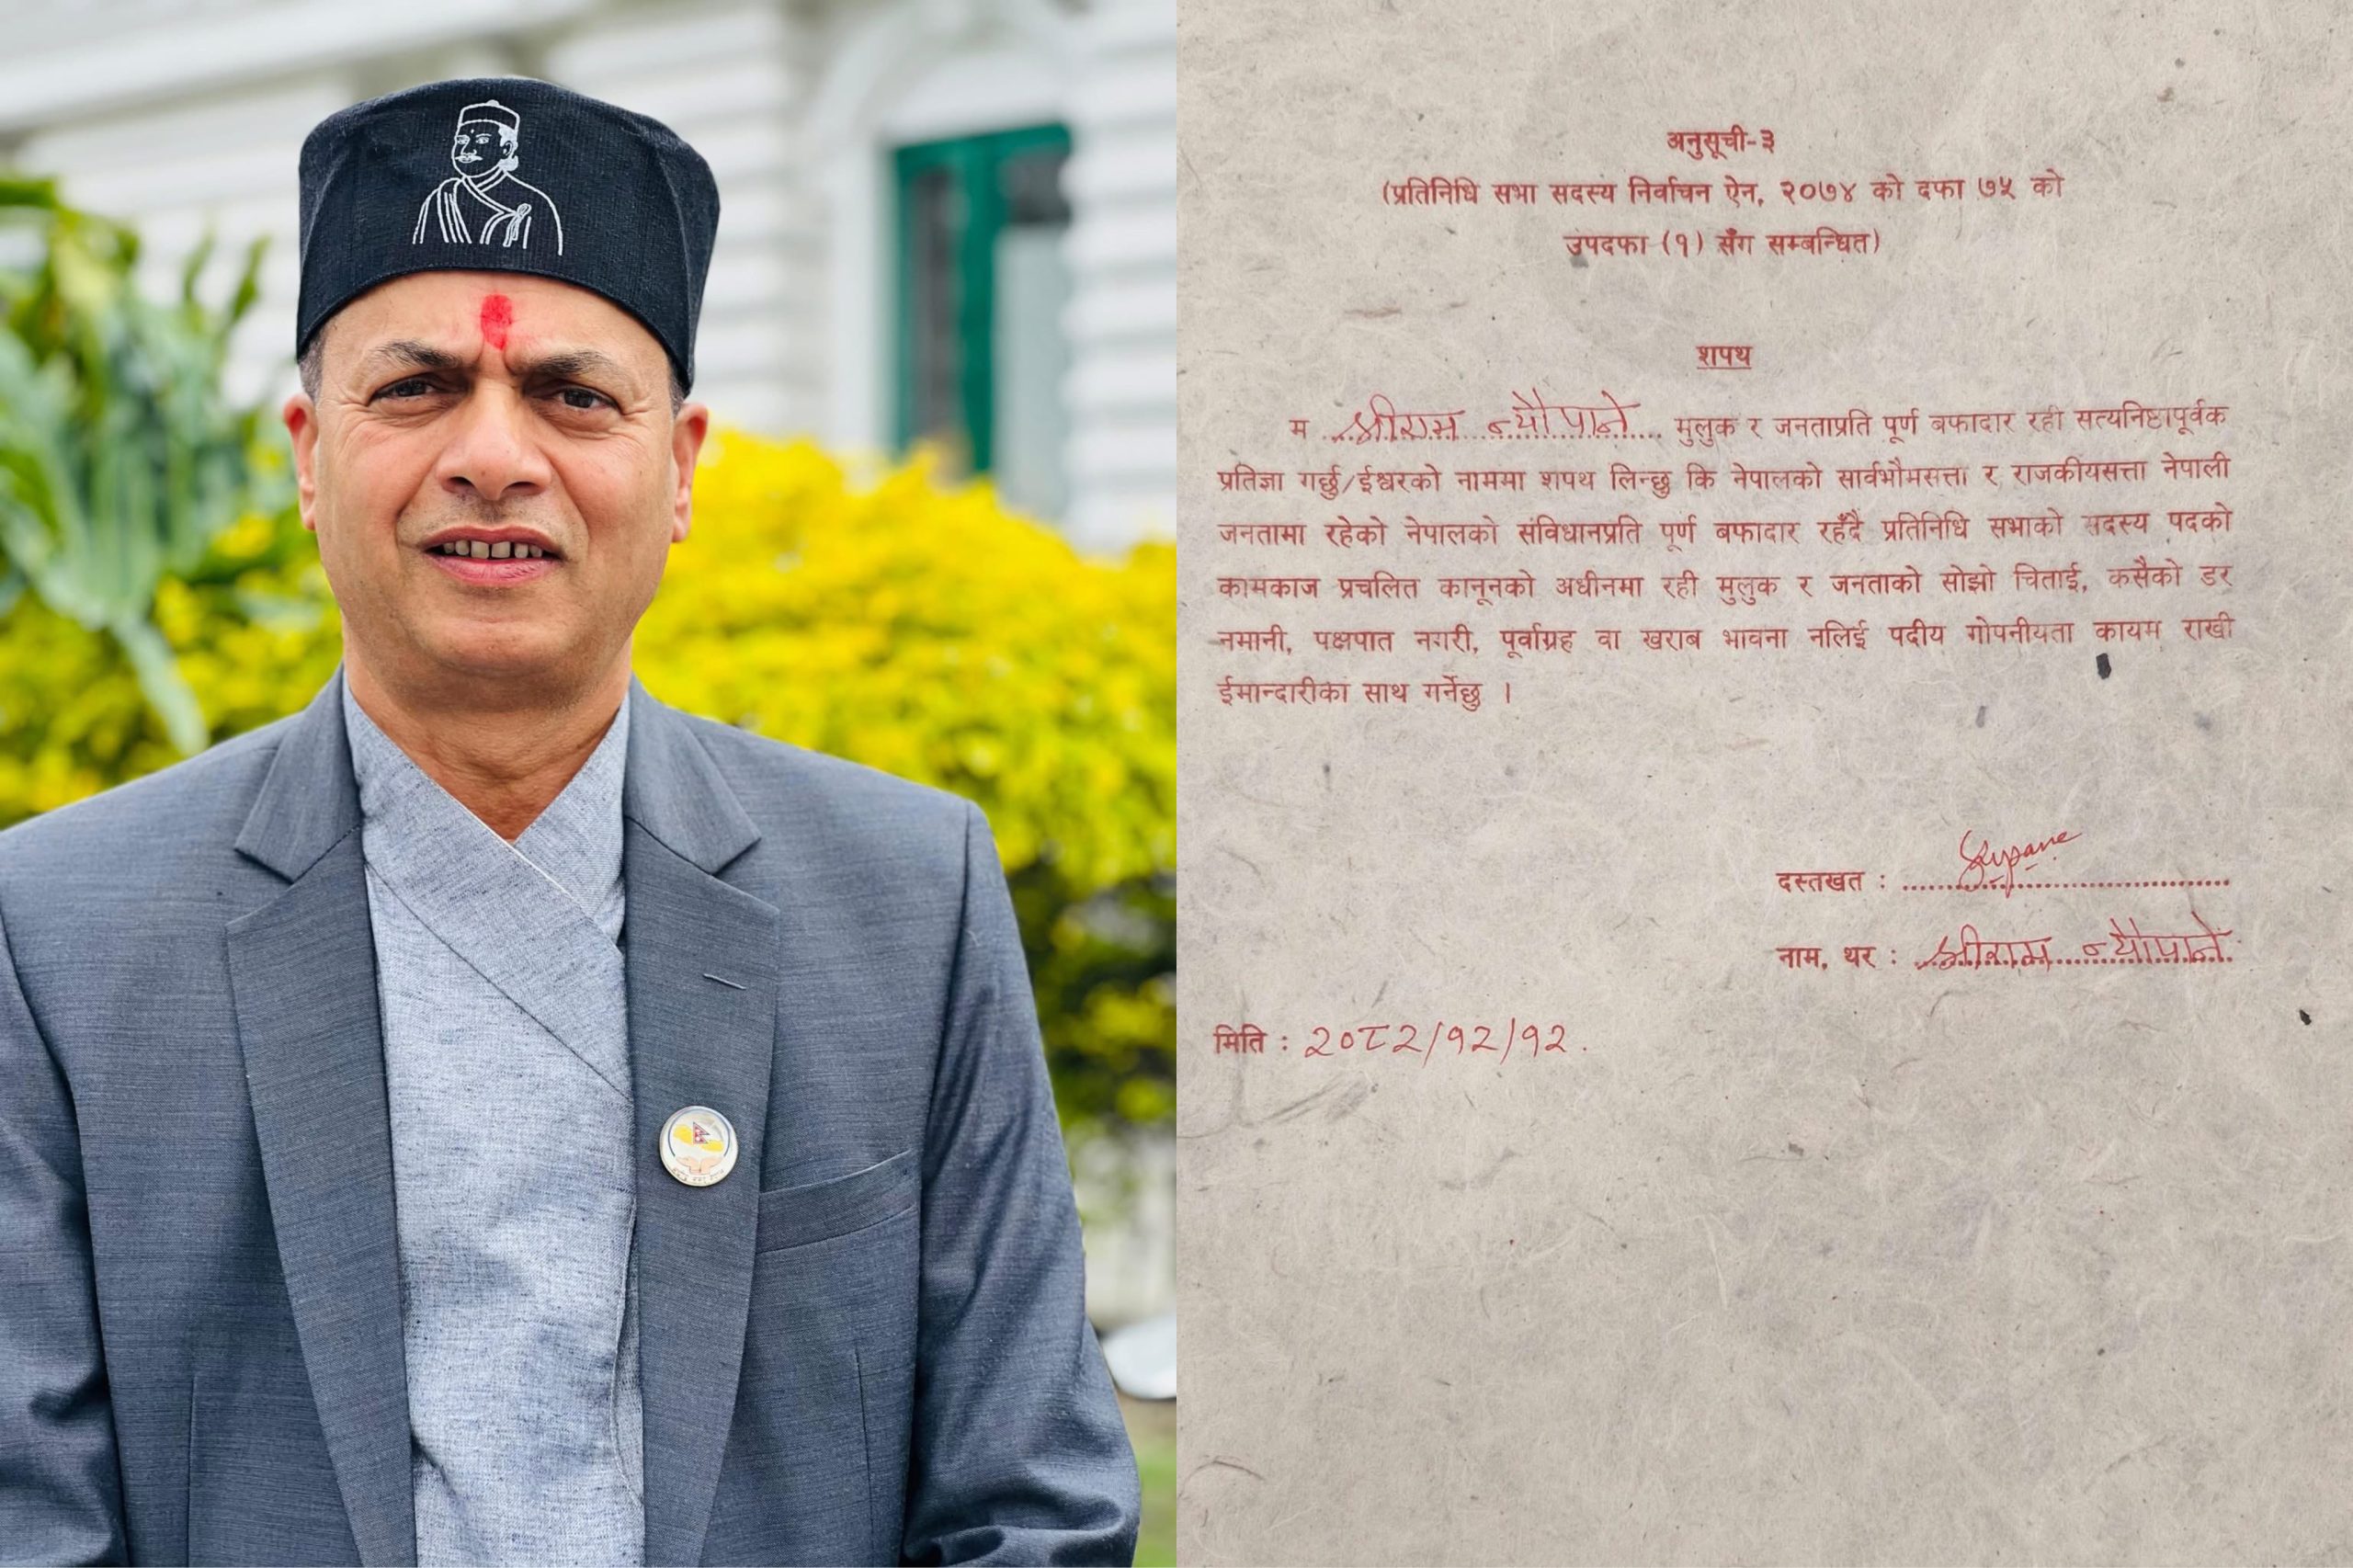 अनुसूची-३
(प्रतिनिधि सभा सदस्य निर्वाचन ऐन, २०७४ को दफा ७५ को
उपदफा (१) सँग सम्बन्धित)
शपथ
म श्रीराम न्यौपाने मुलुक र जनताप्रति पूर्ण बफादार रही सत्यनिष्ठापूर्वक
प्रतिज्ञा गर्छु/ईश्वरको नाममा शपथ लिन्छु कि नेपालको सार्वभौमसत्ता र राजकीयसत्ता नेपाली
जनतामा रहेको नेपालको संविधानप्रति पूर्ण बफादार रहँदै प्रतिनिधि सभाको सदस्य पदको
कामकाज प्रचलित कानूनको अधीनमा रही मुलुक र जनताको सोझो चिताई, कसैको डर
नमानी, पक्षपात नगरी, पूर्वाग्रह वा खराब भावना नलिई पदीय गोपनीयता कायम राखी
ईमान्दारीका साथ गर्नेछु ।
दस्तखत :
नाम, थर : श्रीराम न्यौपाने
मिति : २०८२/१२/१२.